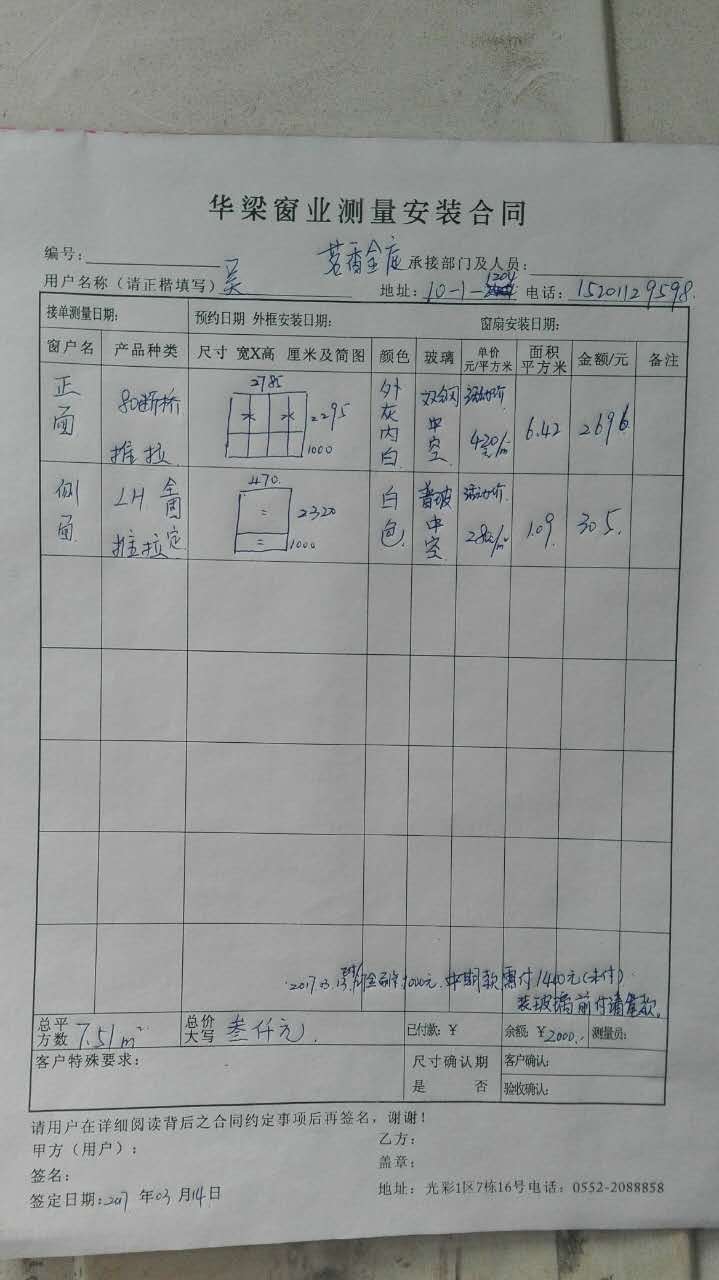 华梁窗业测量安装合同
编号:
茗香全庭 承接部门及人员:
用户名称（请正楷填写）吴 地址: 10-1-1204 电话: 15201129598.
接单测量日期: 预约日期 外框安装日期: 窗扇安装日期:
窗户名 产品种类 尺寸 宽X高 厘米及简图 颜色 玻璃 单价 元/平方米 面积 平方米 金额/元 备注
正面 80断桥 推拉 2785 2295 1000 外灰内白 双钢中空 活动价 420元/m² 6.42 2696
侧面 LH 推拉 470 2320 1000 白色 普玻中空 活动价 280元/m² 1.09 305.
2017.03.13 1000元. 中期款需付1440元(未付)
装玻璃前付清余款。
总平方数 7.51m² 总价大写 叁仟元. 已付款: ¥ 余额: ¥2000. 测量员:
客户特殊要求: 尺寸确认期 客户确认:
是 否 验收确认:
请用户在详细阅读背后之合同约定事项后再签名，谢谢！
甲方（用户）: 乙方:
签名: 盖章:
签定日期: 2017 年 03 月 14 日 地址: 光彩1区7栋16号电话: 0552-2088858